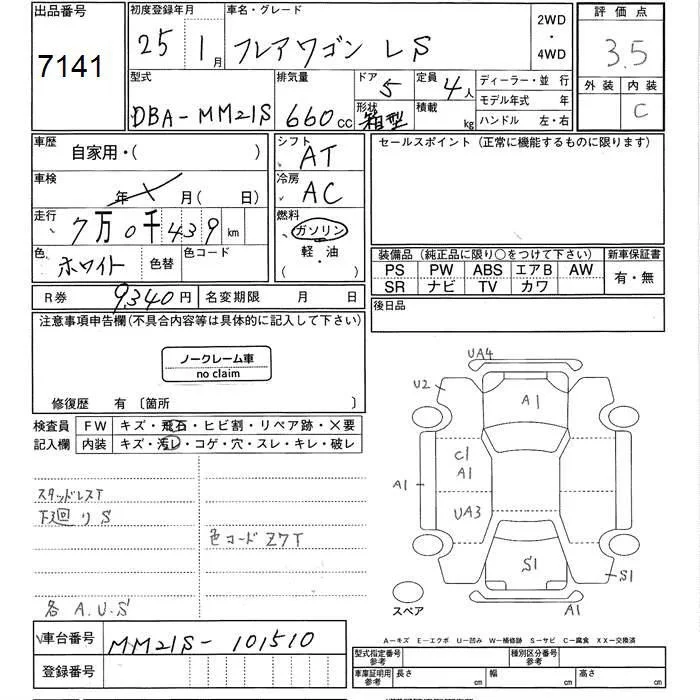 出品番号
7141
初度登録年月
25 1月
車名・グレード
フレアワゴン LS
2WD
・
4WD
評価点
3.5
型式
DBA-MM21S
排気量
660cc
ドア
5
形状
箱型
定員
4人
積載
kg
ディーラー・並 行
モデル年式 年
ハンドル 左・右
外装 内装
C
車歴
自家用・( )
車検
年 月( 日)
走行
7万0千439km
色
ホワイト
色替
色コード
シフト
AT
冷房
AC
燃料
ガソリン
軽・油
( )
セールスポイント(正常に機能するものに限ります)
装備品(純正品に限り○をつけて下さい)
PS PW ABS エアB AW
SR ナビ TV カワ
新車保証書
有・無
R券 9,340円
名変期限 月 日
後日品
注意事項申告欄(不具合内容等は具体的に記入して下さい)
ノークレーム車
no claim
修復歴 有〔箇所 〕
検査員
記入欄
FW キズ・飛石・ヒビ割・リペア跡・×要
内装 キズ・汚レ・コゲ・穴・スレ・キレ・破レ
スタッドレスT
下廻りS
色コードZ7T
各A.U.S
UA4
U2
A1
C1
A1
A1
UA3
S1
S1
A1
スペア
A-キズ E-エクボ U-凹み W-補修跡 S-サビ C-腐食 XX-交換済
車台番号
MM21S-101510
登録番号
型式指定番号
参考
種別区分番号
参考
車庫証明用
参考
長さ cm
幅 cm
高さ cm